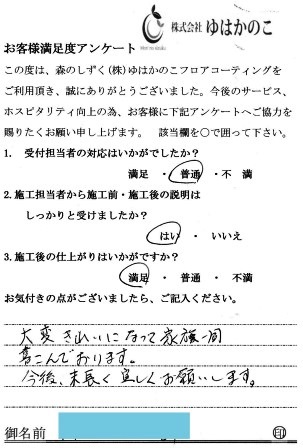 株式会社 ゆはかのこ
お客様満足度アンケート
この度は、森のしずく(株)ゆはかのこフロアコーティングを
ご利用頂き、誠にありがとうございました。今後のサービス、
ホスピタリティ向上の為、お客様に下記アンケートへご協力を
賜りたくお願い申し上げます。 該当欄を○で囲って下さい。
1. 受付担当者の対応はいかがでしたか?
満足 ・ 普通 ・ 不 満
2. 施工担当者から施工前・施工後の説明は
しっかりと受けましたか?
はい ・ いいえ
3. 施工後の仕上がりはいかがですか?
満足 ・ 普通 ・ 不満
お気付きの点がございましたら、ご記入ください。
大変きれいになって家族一同
喜こんでおります。
今後、末長く宜しくお願いします。
御名前 印